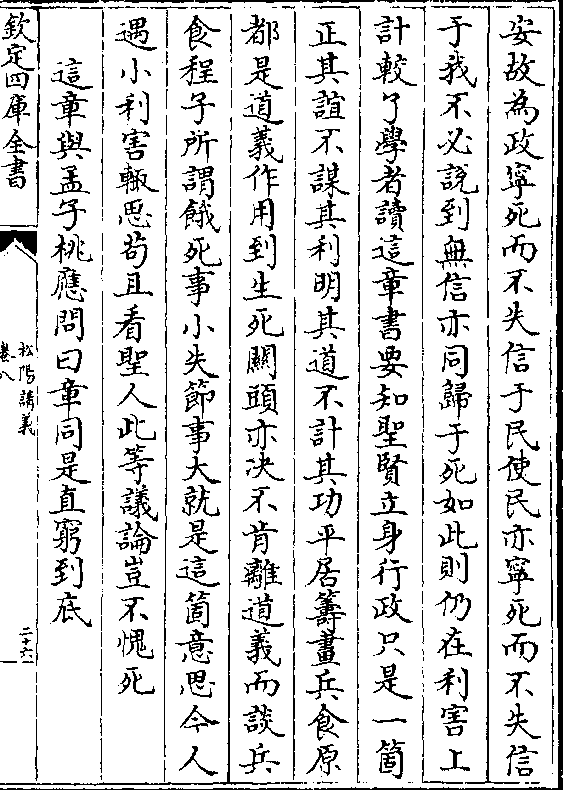 安故為政寧死而不失信于民使民亦寧死而不失信
于我不必說到無信亦同歸于死如此則仍在利害上
計較了學者讀這章書要知聖賢立身行政只是一箇
正其誼不謀其利明其道不計其功平居籌畫兵食原
都是道義作用到生死關頭亦决不肯離道義而談兵
食程子所謂餓死事小失節事大就是這箇意思今人
遇小利害輙思苟且看聖人此等議論豈不愧死
這章與孟子桃應問曰章同是直窮到底
欽定四庫全書
松陽講義
卷八
二十六